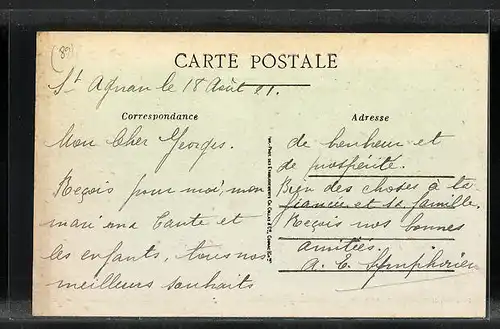 (89)
CARTE POSTALE
St Agnan le 18 Août 21.
Correspondance
Mon Cher Georges.
Reçois pour moi, mon
mari ma Tante et
les enfants, tous nos
meilleurs souhaits
Adresse
de bonheur et
de prospérité.
Bien des choses à ta
fiancée et sa famille.
Reçois nos bonnes
amitiés.
A. E. Symphorien